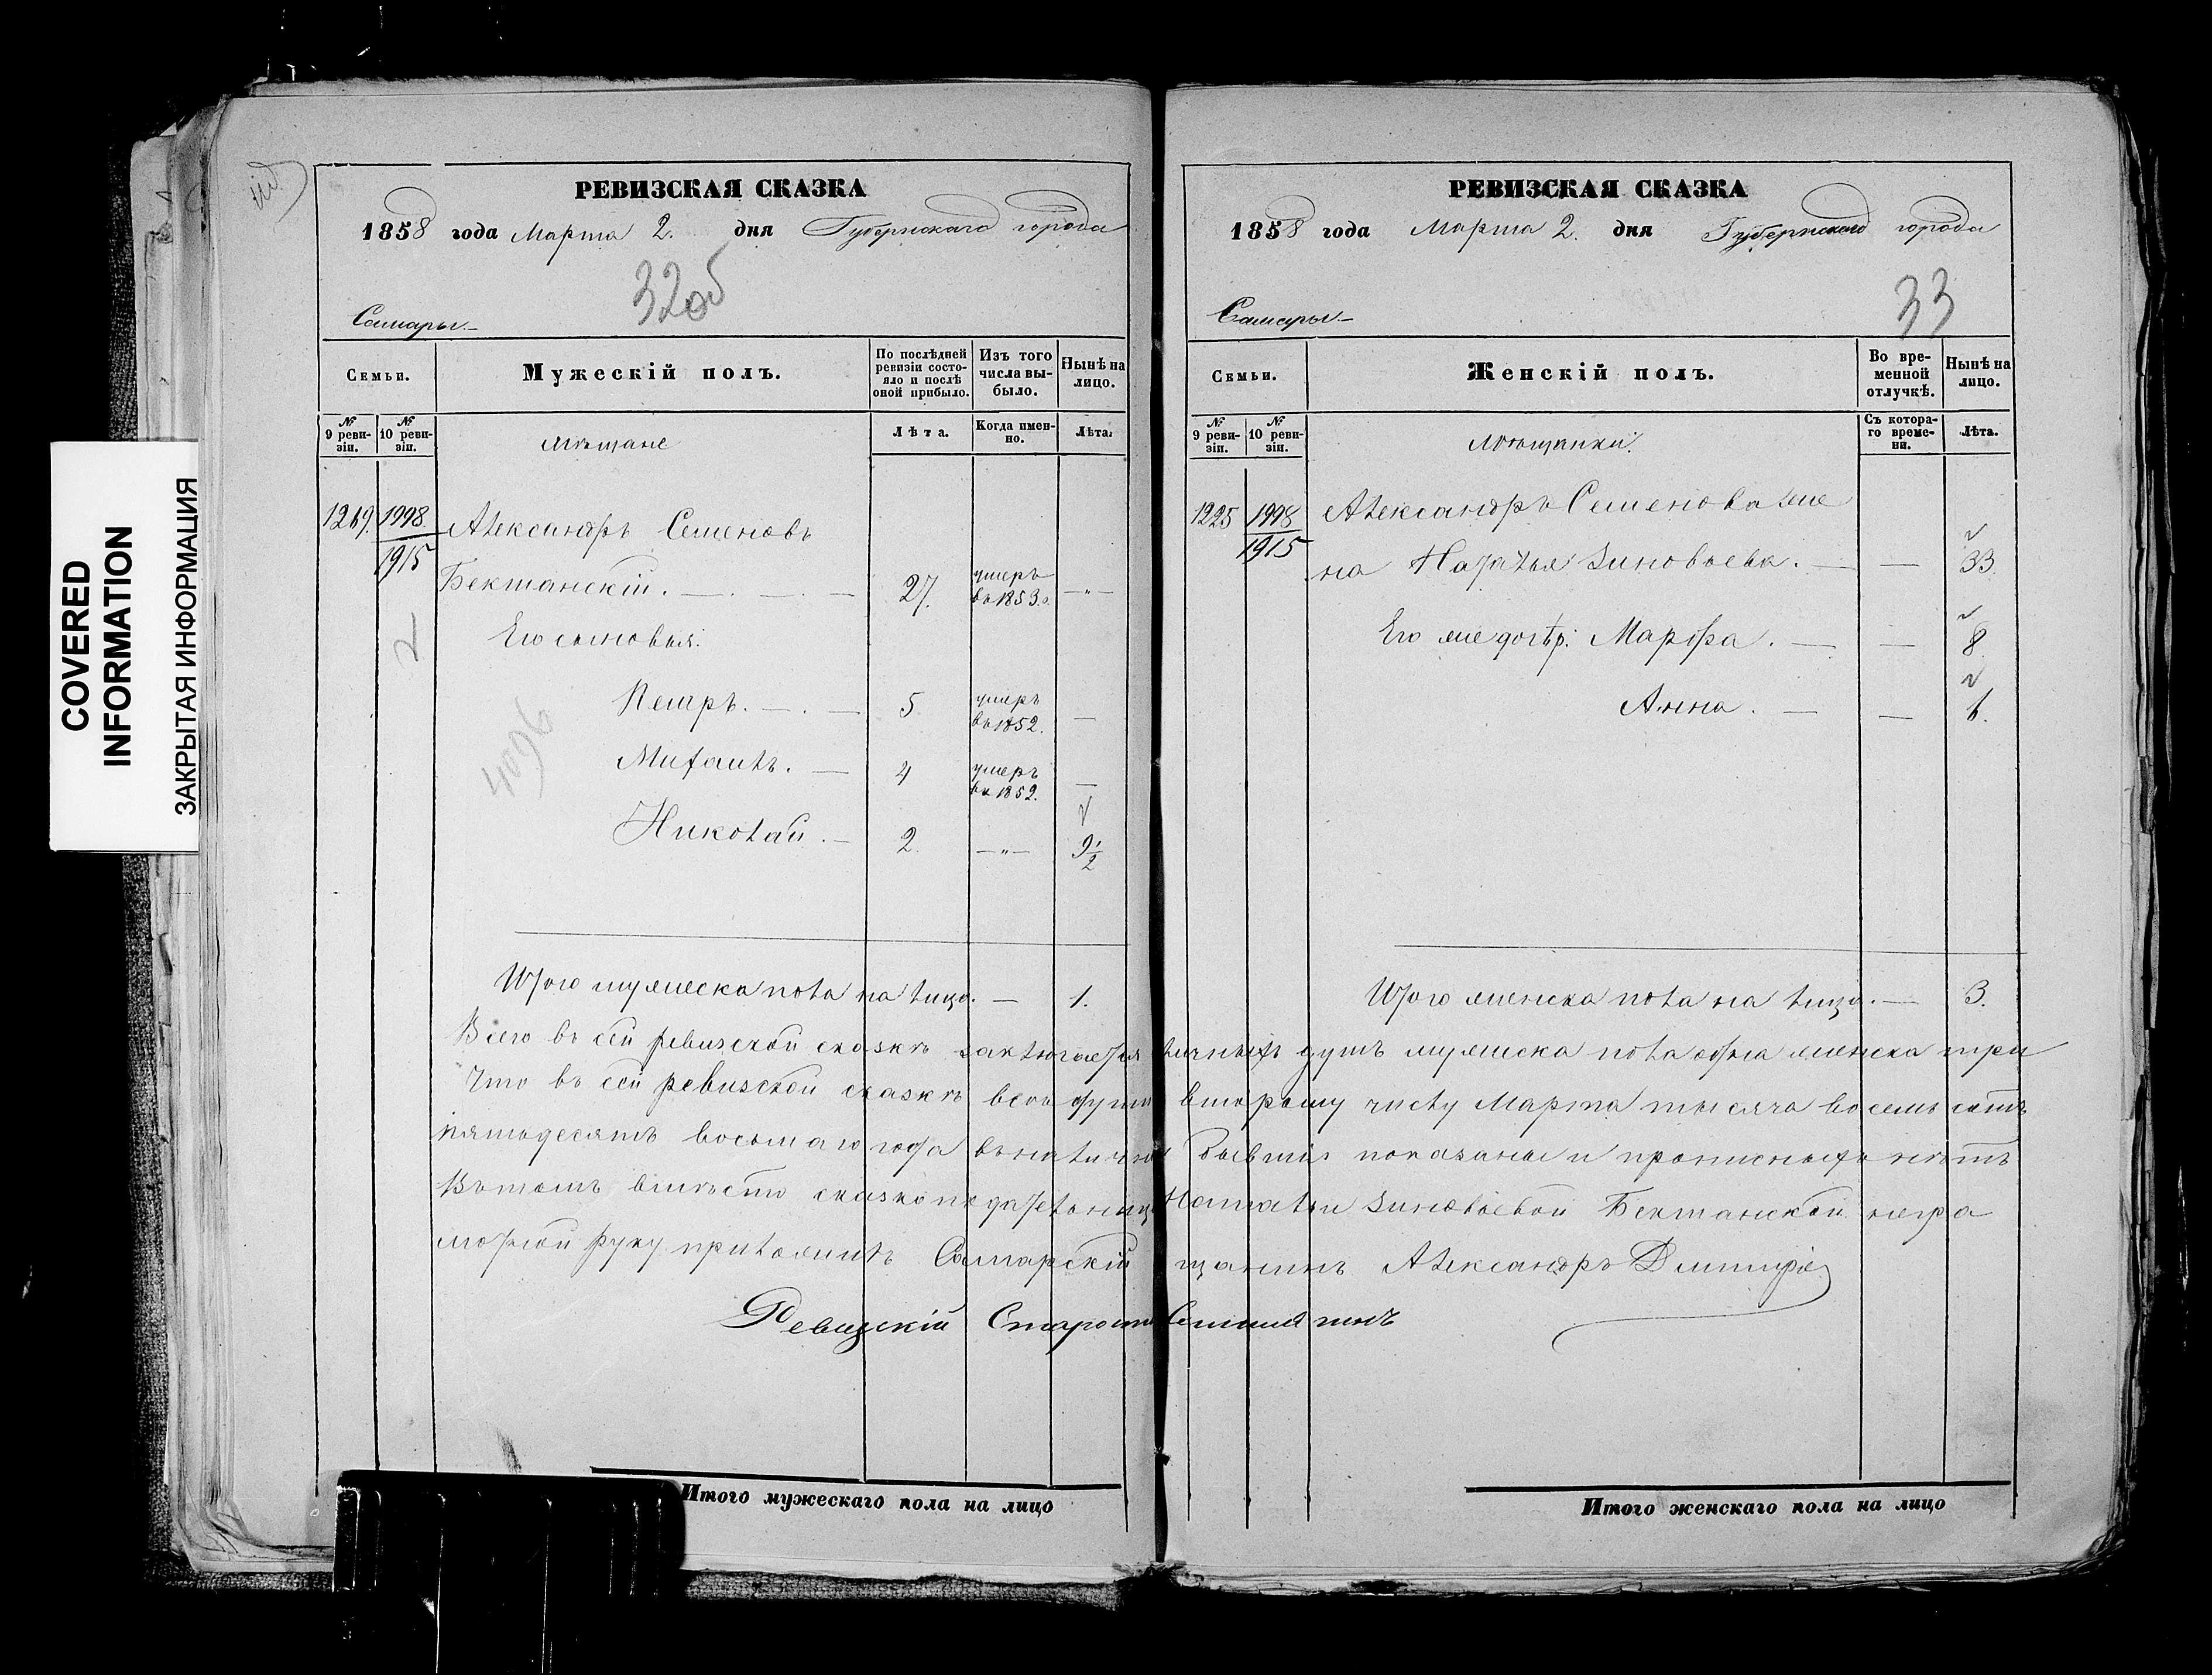 COVERED
INFORMATION
ЗАКРЫТАЯ ИНФОРМАЦИЯ
РЕВИЗСКАЯ СКАЗКА
1858 года Марта 2. дня Губернскаго города
32об
Самары.-
Семьи.
Мужескій полъ.
По послѣдней ревизіи состояло и послѣ оной прибыло.
Изъ того числа выбыло.
Нынѣ на лицо.
№ 9 ревизіи.
№ 10 ревизіи.
мѣщане
Лѣта.
Когда именно.
Лѣта.
1219. 1998 Александръ Семеновъ
1915
Бекшанскій. 27. умеръ въ 1853. — " —
Его сыновья:
Петръ. 5. умеръ въ 1852. —
Михаилъ. 4 умеръ въ 1852. —
4096
Николай. 2. — " — 9 1/2
Итого мужеска пола на лицо. — 1.
РЕВИЗСКАЯ СКАЗКА
1858 года Марта 2. дня Губернскаго города
33
Самары.-
Семьи.
Женскій полъ.
Во временной отлучкѣ.
Нынѣ на лицо.
№ 9 ревизіи.
№ 10 ревизіи.
мѣщанки.
Съ котораго времени.
Лѣта.
1225 1998 Александръ Семенова же
1915
на Наталья Зиновьева. — — 33
Его же дочѣр: Марфа. — — 8.
Анна. — —
Итого женска пола на лицо. — 3.
Всего въ сей ревизской сказкѣ заключается личныхъ душъ мужеска пола одна женска три
Что въ сей ревизской сказкѣ всѣ души второму числу Марта тысяча восемь сотъ
пятьдесятъ восьмаго года въ наличн бывшія показаны и прописныхъ нѣтъ
Въ томъ вмѣсто сказкоподательниц Натальи Зиновьевой Бекшанской негра
мотной руку приложилъ Самарскій щанинъ Александръ Дмитріе
Ревизскій Старост
Итого мужескаго пола на лицо
Итого женскаго пола на лицо